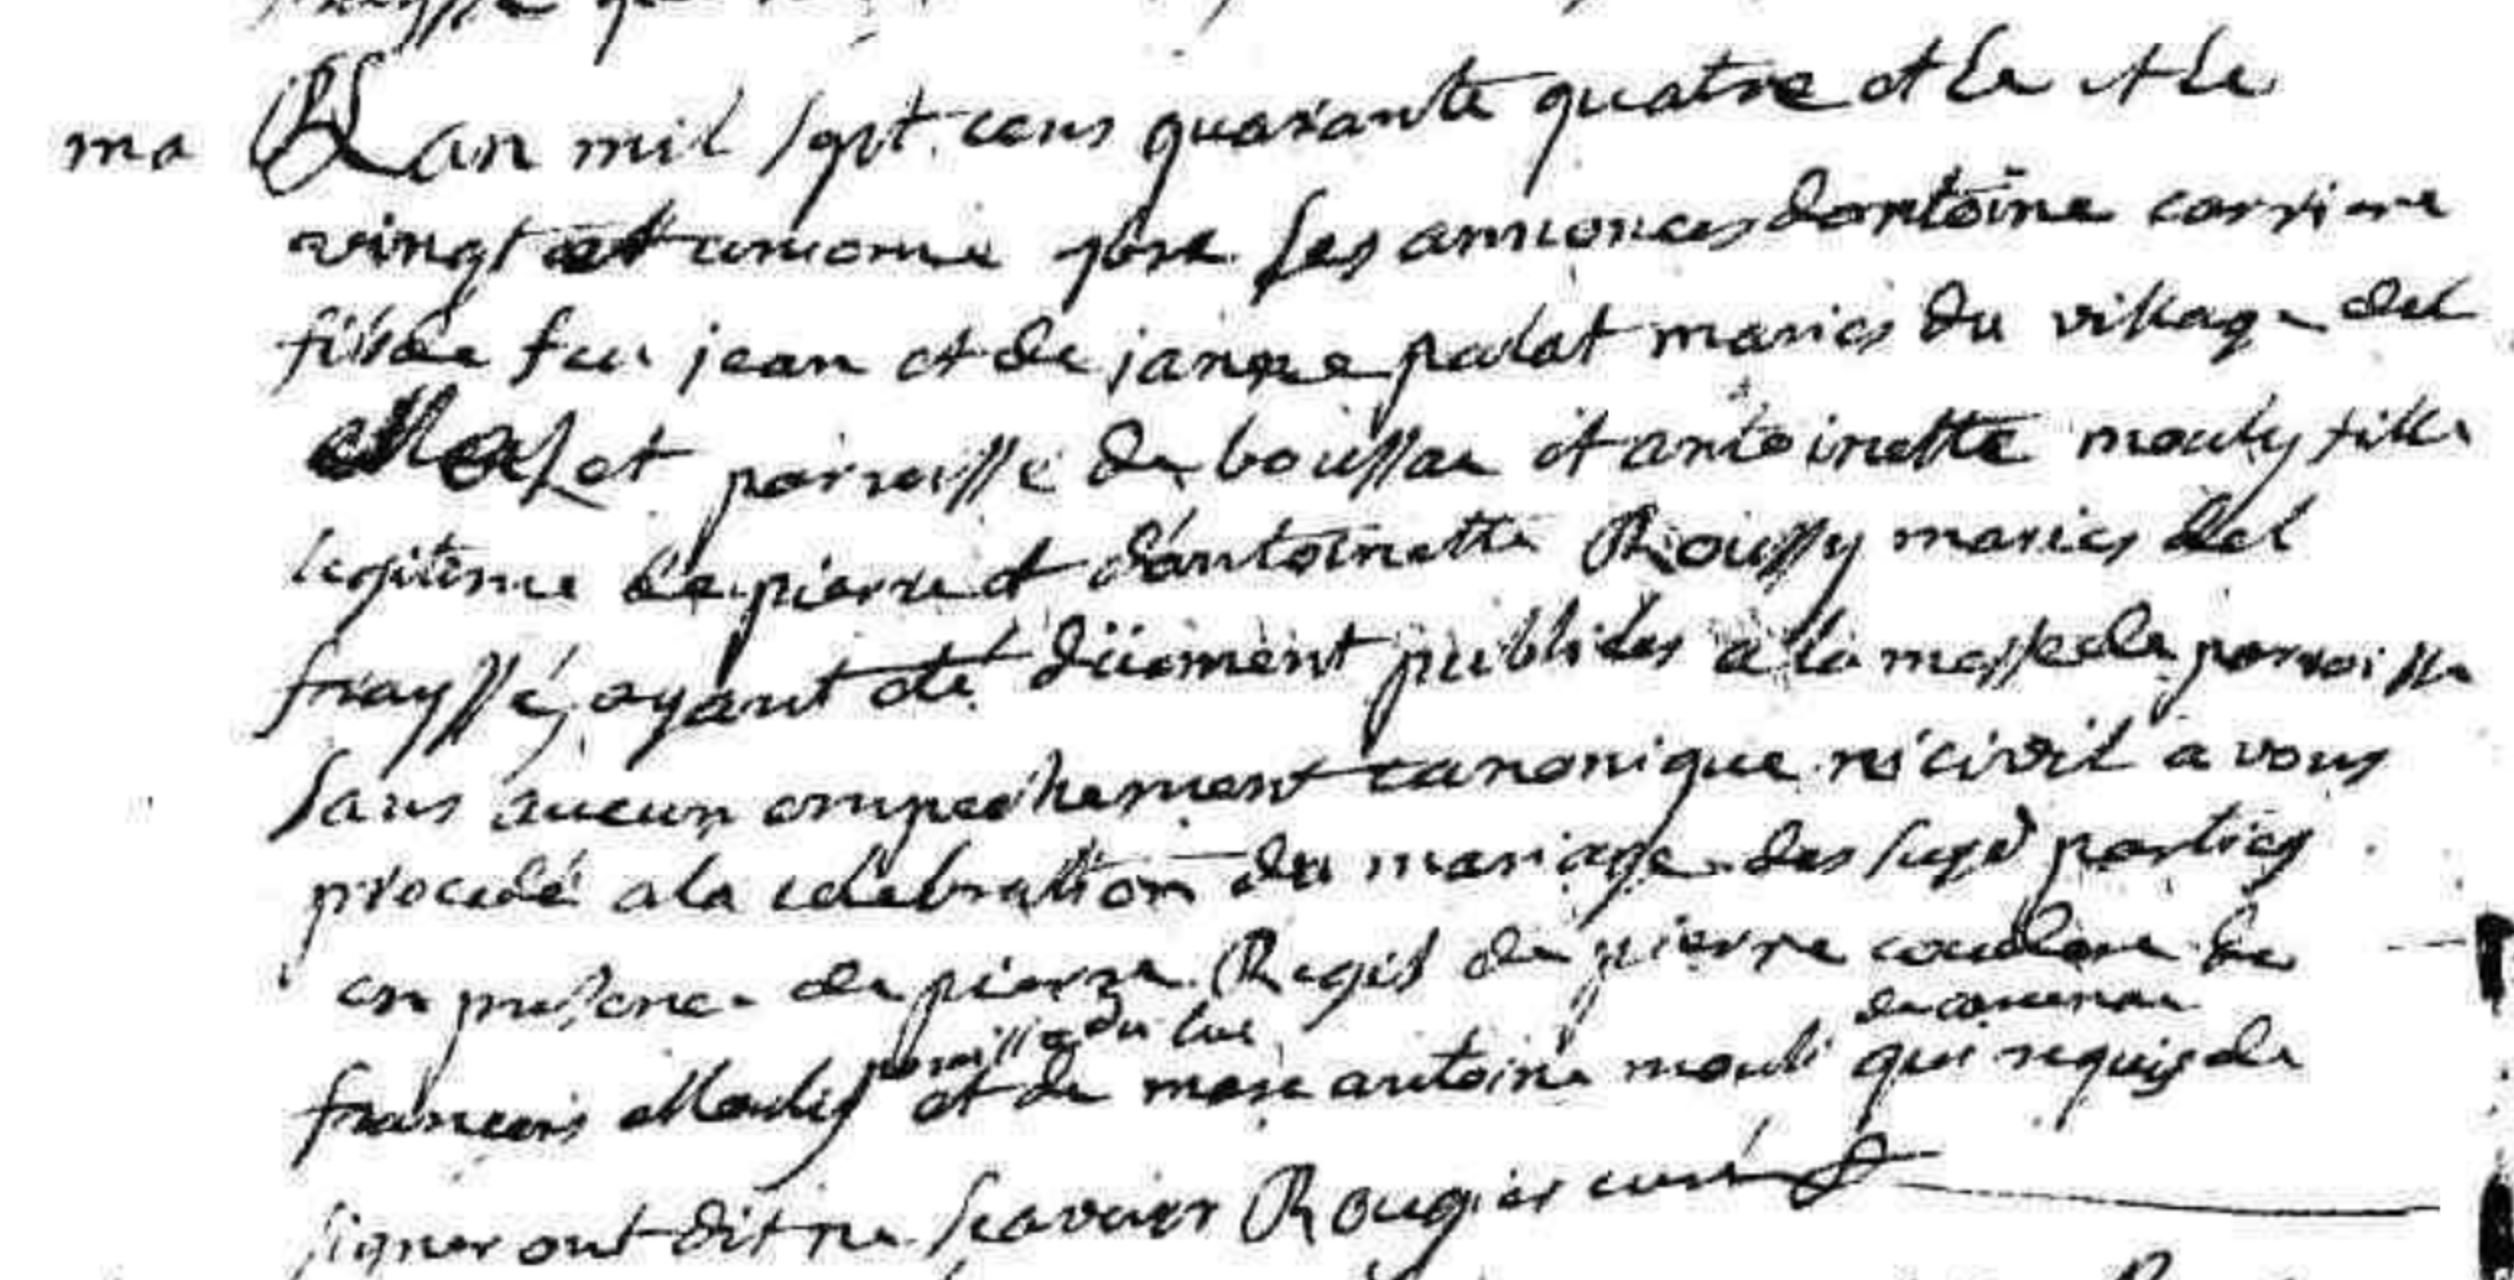 ma Lan mil sept cens quarante quatre et le et le
vingt et unieme 9bre les annonces dantoine carriere
fils de feu jean et de janne palat maries du village del
Mazet parroisse de boussac et antoinette mouly fille
legitime de pierre et d'antoinette Roussy maries del
fraysse, ayant eté düement publiées a la messe de parroisse
sans aucun empechement canonique ni civil avons
procedé a la celebration du mariage des susd parties
en presence de pierre Regis de pierre couderc de
francois Mouly parroisse du luc et de marc antoine mouli qui requis de
signer ont dit ne scavoir Rougier curé